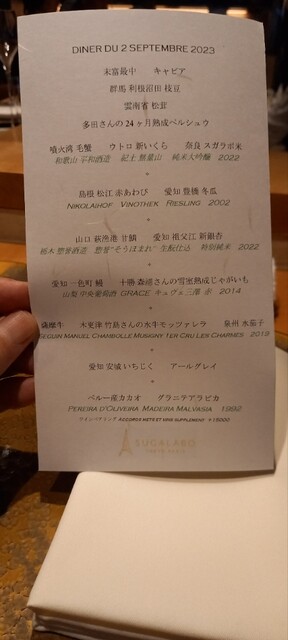 DINER DU 2 SEPTEMBRE 2023
末富最中 キャビア
群馬 利根沼田 枝豆
雲南省 松茸
多田さんの24ヶ月熟成ペルシュウ
噴火湾 毛蟹 ウトロ 新いくら 奈良 スガラボ米
和歌山 平和酒造 紀土 無量山 純米大吟醸 2022
島根 松江 赤あわび 愛知 豊橋 冬瓜
NIKOLAIHOF VINOTHEK RIESLING 2002
山口 萩漁港 甘鯛 愛知 祖父江 新銀杏
栃木 惣誉酒造 惣誉 生酛仕込 特別純米 2022
愛知 一色町 鰻 十勝 森浦さんの雪室熟成じゃがいも
山梨 中央葡萄酒 GRACE キュヴェ三澤 赤 2014
薩摩牛 木更津 竹島さんの水牛モッツァレラ 泉州 水茄子
SEGUIN MANUEL CHAMBOLLE MUSIGNY 1ER CRU LES CHARMES 2013
愛知 安城 いちじく アールグレイ
ペルー産カカオ グラニテアラビカ
PEREIRA D'OLIVEIRA MADEIRA MALVASIA 1992
ワインペアリング ACCORDS METS ET VINS SUPPLEMENT
SUGALABO